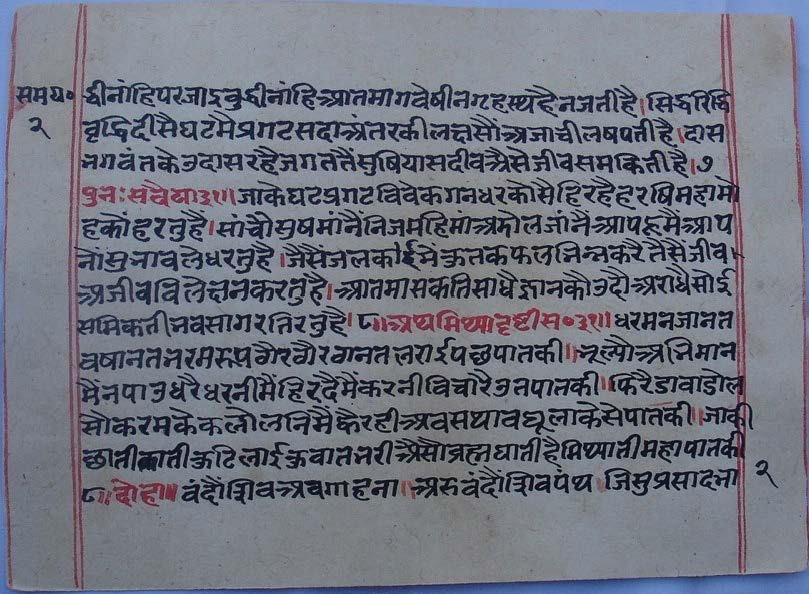 समय० द्वीनांहिपरजाइबुद्वीनांहिआतमागवेषीनगृहस्थहैनजतीहै। सिद्धरिद्धि
२ वृद्धिदीसैघटमैप्रगटसदाअंतरकीलक्षसौंअजाचीलषपतीहै। दास
भगवंतकेउदासरहैजगततैंसुषियासदीवअैसेजीवसमकितीहै।७
पुनःसवैया३१।। जाकेघटप्रगटविवेकगनधरकोसैहिरहैहरषिमहामो
हकोंहरतुहै। सांचौसुषमांनैंनिजमहिमांअडोलजांनैआपहूमैआप
नोंसुभावलेधरतुहै। जैसैंजलकर्दमेंकुतकफलभिन्नकरैतैसैजीव
अजीवविलेछनकरतुहै। आतमासकतिसाधैज्ञानकौउदौअराधैसोई
समकितीभवसागरतिरतुहै।८।। अथमिथ्यादृष्टीस०३१।। धरमनजानत
बषानतभरमरूपठौरठौरठानतलराईपछपातकी। भूल्यौअभिमान
मैंनपाउधरैधरनीमैंहिरदैमैंकरनीविचारैउतपातकी। फिरैडावाडोल
सौकरमकेकलोलनिमैंह्वैरहीअवसथाबघूलाकेसेपातकी। जाकी
छातीतातीकुटिलाईकुवातभरीअैसौब्रह्मघातीहैमिथ्यातीमहापातकी
८। दोहा।। वंदौंशिवअवगाहना। अरुवंदौंशिवपंथ। जिसुप्रसादभा २